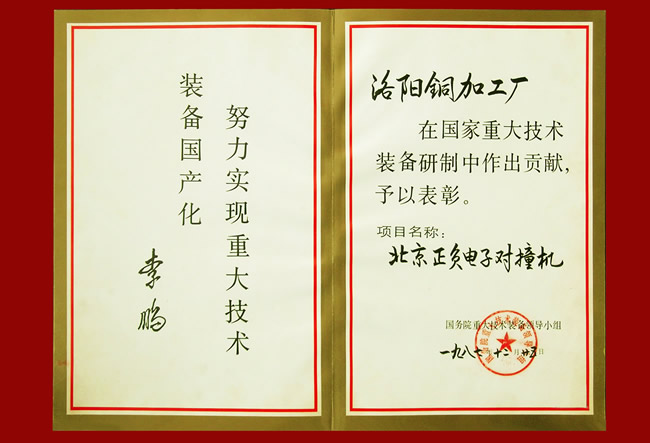 努力实现重大技术
装备国产化
李鹏
洛阳铜加工厂
在国家重大技术
装备研制中作出贡献,
予以表彰。
项目名称:
北京正负电子对撞机
国务院重大技术装备领导小组
一九八七年十二月廿五日